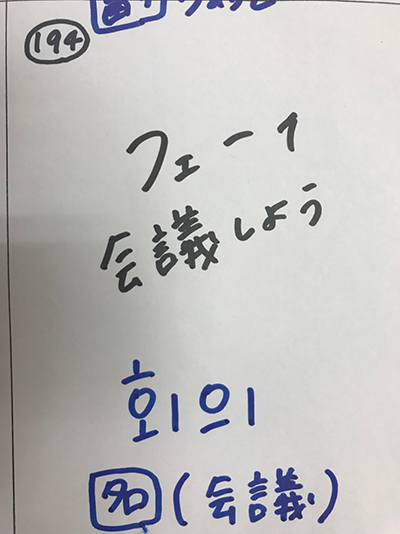 194
フェーイ
会議しよう
회의
名(会議)